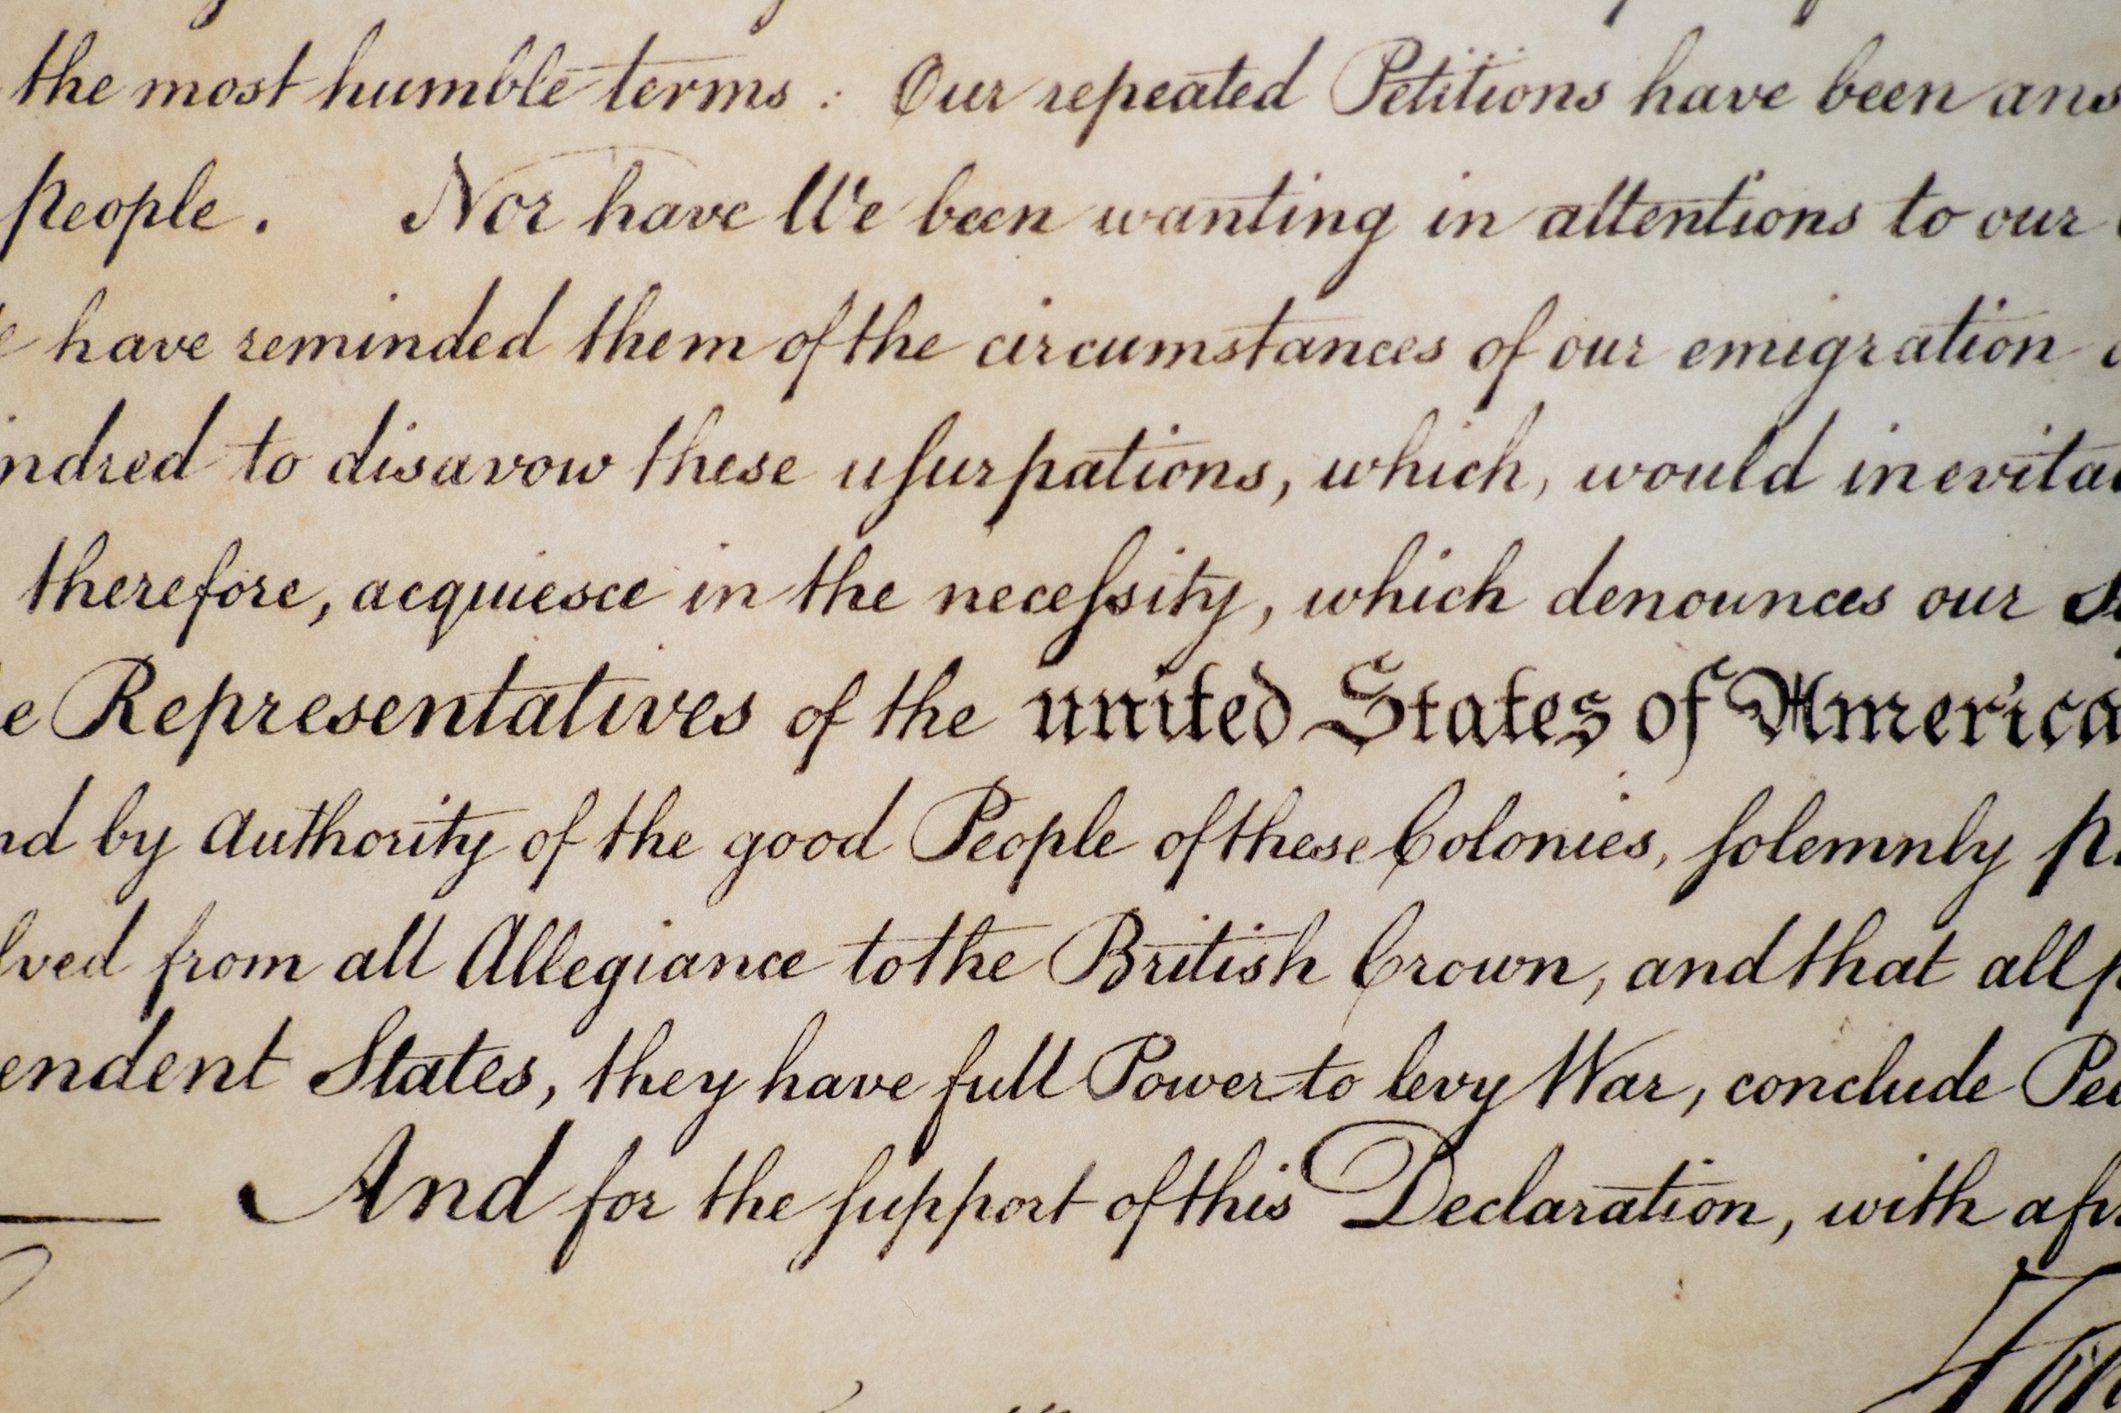 the most humble terms : Our repeated Petitions have been ans
people . Nor have We been wanting in attentions to our
have reminded them of the circumstances of our emigration
indred to disavow these uſurpations, which, would inevita
therefore, acquiesce in the neceſsity, which denounces our
e Representatives of the united States of America
nd by Authority of the good People of these Colonies, ſolemnly p
lved from all Allegiance to the British Crown, and that all p
endent States, they have full Power to levy War, conclude Pea
And for the ſupport of this Declaration, with a fir